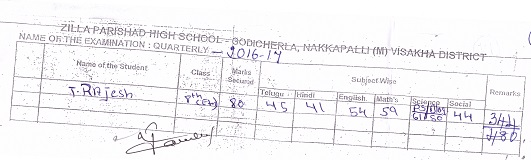 ZILLA PARISHAD HIGH SCHOOL - GODICHERLA, NAKKAPALLI (M) VISAKHA DISTRICT
NAME OF THE EXAMINATION : QUARTERLY - 2016-17
Name of the Student Class Marks Secured Subject Wise Remarks
Telugu Hindi English Math's Science Social
T. Rajesh 8th 80 45 41 54 59 44 344
61/50 480